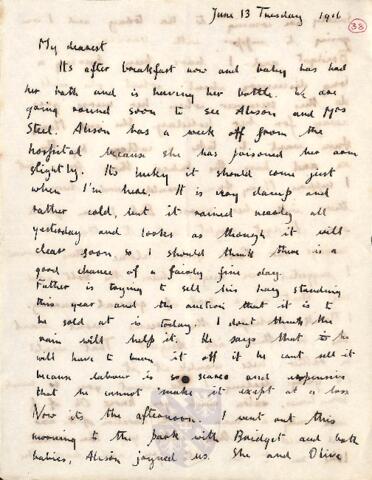 June 13 Tuesday 1916
38
My dearest
Its after breakfast now and baby has had
her bath and is having her bottle. We are
going round soon to see Alison and Mrs
Steel. Alison has a week off from the
hospital because she has poisoned her arm
slightly. Its lucky it should come just
when I'm here. It is very damp and
rather cold, but it rained nearly all
yesterday and looks as though it will
clear soon so I should think there is a
good chance of a fairly fine day.
Father is trying to sell his hay standing
this year and the auction that it is to
be sold at is today. I dont think the
rain will help it. He says that he
will have to burn it off if he cant sell it
because labour is so scarce and expensive
that he cannot make it exept at a loss
Now its the afternoon. I went out this
morning to the park with Bridget and both
babies, Alison joyned us. She and Olive